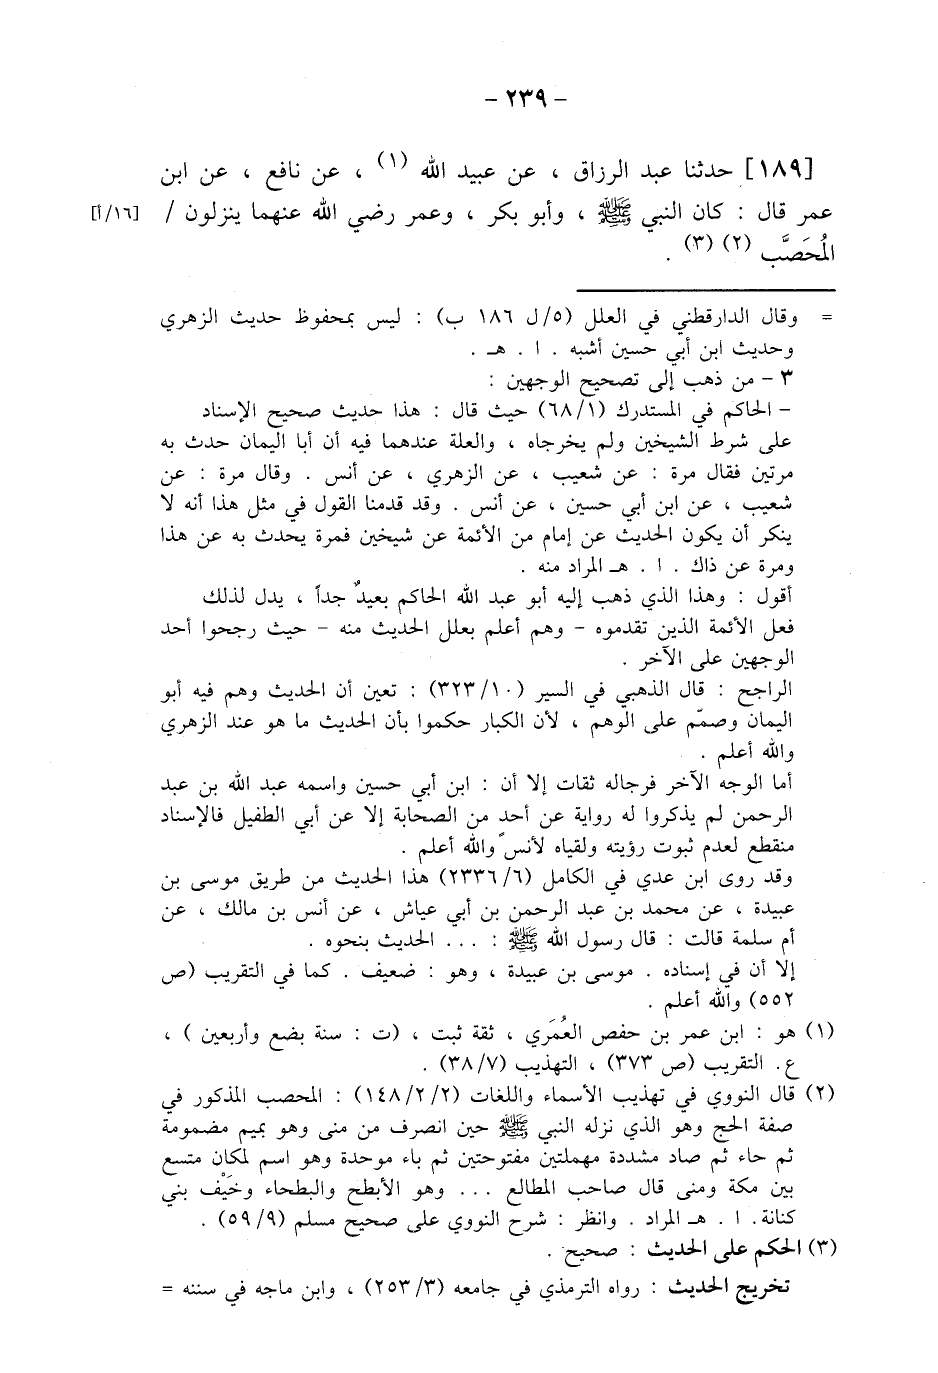 – ٢٣٩ –
[١٨٩] حدثنا عبد الرزاق ، عن عبيد الله (١) ، عن نافع ، عن ابن
عمر قال : كان النبي ﷺ ، وأبو بكر ، وعمر رضي الله عنهما ينزلون / [١٦/أ]
المُحَصَّب (٢) (٣) .
= وقال الدارقطني في العلل (٥/ل ١٨٦ ب) : ليس بمحفوظ حديث الزهري
وحديث ابن أبي حسين أشبه . ا . هـ .
٣ – من ذهب إلى تصحيح الوجهين :
– الحاكم في المستدرك (٦٨/١) حيث قال : هذا حديث صحيح الإسناد
على شرط الشيخين ولم يخرجاه ، والعلة عندهما فيه أن أبا اليمان حدث به
مرتين فقال مرة : عن شعيب ، عن الزهري ، عن أنس . وقال مرة : عن
شعيب ، عن ابن أبي حسين ، عن أنس . وقد قدمنا القول في مثل هذا أنه لا
ينكر أن يكون الحديث عن إمام من الأئمة عن شيخين فمرة يحدث به عن هذا
ومرة عن ذاك . ا . هـ المراد منه .
أقول : وهذا الذي ذهب إليه أبو عبد الله الحاكم بعيدٌ جداً ، يدل لذلك
فعل الأئمة الذين تقدموه – وهم أعلم بعلل الحديث منه – حيث رجحوا أحد
الوجهين على الآخر .
الراجح : قال الذهبي في السير (٣٢٣/١٠) : تعين أن الحديث وهم فيه أبو
اليمان وصمّم على الوهم ، لأن الكبار حكموا بأن الحديث ما هو عند الزهري
والله أعلم .
أما الوجه الآخر فرجاله ثقات إلا أن : ابن أبي حسين واسمه عبد الله بن عبد
الرحمن لم يذكروا له رواية عن أحد من الصحابة إلا عن أبي الطفيل فالإسناد
منقطع لعدم ثبوت رؤيته ولقياه لأنس والله أعلم .
وقد روى ابن عدي في الكامل (٢٣٣٦/٦) هذا الحديث من طريق موسى بن
عبيدة ، عن محمد بن عبد الرحمن بن أبي عياش ، عن أنس بن مالك ، عن
أم سلمة قالت : قال رسول الله ﷺ : ... الحديث بنحوه .
إلا أن في إسناده . موسى بن عبيدة ، وهو : ضعيف . كما في التقريب (ص
٥٥٢) والله أعلم .
(١) هو : ابن عمر بن حفص العُمَري ، ثقة ثبت ، (ت : سنة بضع وأربعين ) ،
ع. التقريب (ص ٣٧٣) ، التهذيب (٣٨/٧) .
(٢) قال النووي في تهذيب الأسماء واللغات (١٤٨/٢/٢) : المحصب المذكور في
صفة الحج وهو الذي نزله النبي ﷺ حين انصرف من منى وهو بميم مضمومة
ثم حاء ثم صاد مشددة مهملتين مفتوحتين ثم باء موحدة وهو اسم لمكان متسع
بين مكة ومنى قال صاحب المطالع ... وهو الأبطح والبطحاء وخَيْف بني
كنانة. ا . هـ المراد . وانظر : شرح النووي على صحيح مسلم (٥٩/٩) .
(٣) الحكم على الحديث : صحيح .
تخريج الحديث : رواه الترمذي في جامعه (٢٥٣/٣) ، وابن ماجه في سننه =